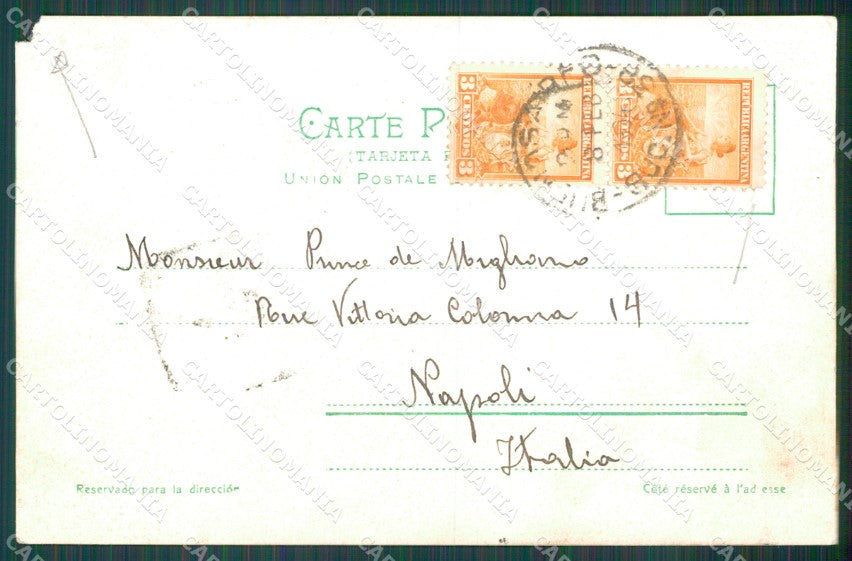 CARTE P
(TARJETA
UNION POSTALE
3 CENTAVOS 3
REPUBLICA ARGENTINA
BUENOS AIRES
Monsieur Prince de Migliano
Rue Vittoria Colonna 14
Napoli
Italia
Reservado para la dirección
Côté réservé à l'adresse
CARTOLINOMANIA